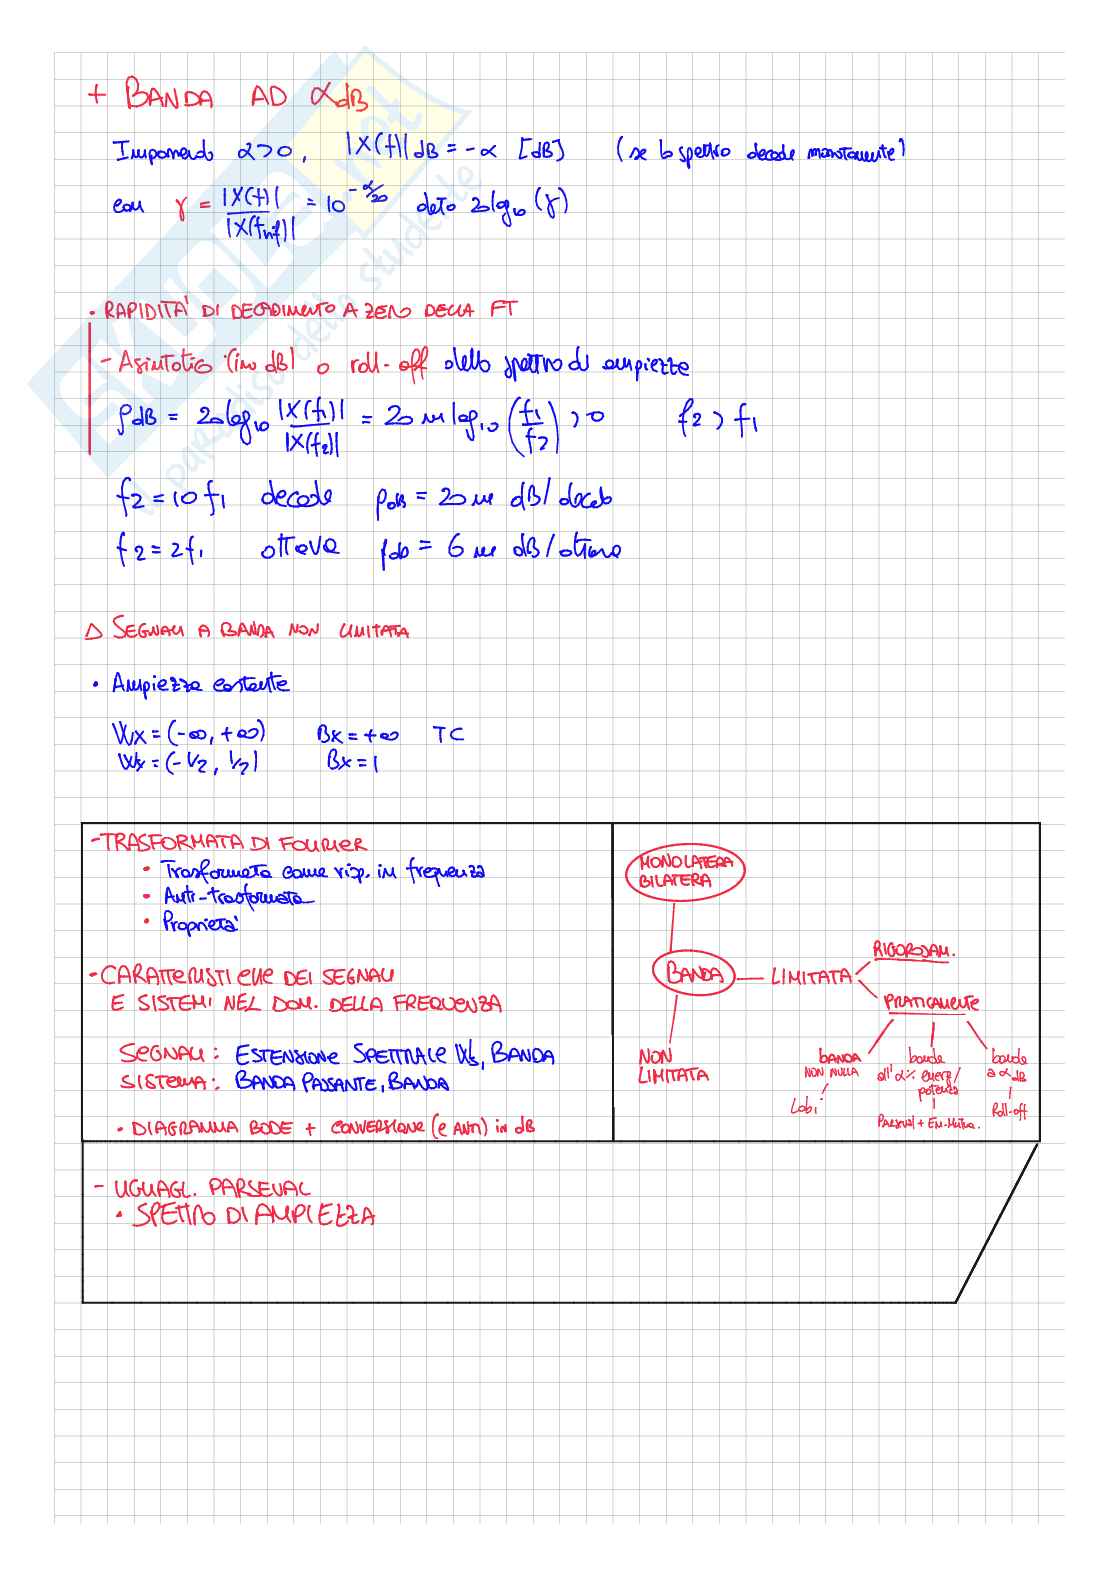 + BANDA AD α dB
Imponendo α>0, |X(f)| dB = -α [dB] (se lo spettro decade monotonamente)
con γ = |X(f)| / |X(f_rif)| = 10^(-α/20) detto 20 log₁₀ (γ)
• RAPIDITA' DI DECADIMENTO A ZERO DELLA FT
- Asintotico (in dB) o roll-off dello spettro di ampiezze
ρdB = 20 log₁₀ |X(f₁)| / |X(f₂)| = 20 m log₁₀ (f₁/f₂) > 0 f₂ > f₁
f₂ = 10 f₁ decade ρdB = 20 m dB/decade
f₂ = 2f₁ ottava ρdB = 6 m dB/ottava
△ SEGNALI A BANDA NON LIMITATA
• Ampiezza costante
Wx = (-∞, +∞) Bx = +∞ TC
Wx = (-1/2, 1/2) Bx = 1
- TRASFORMATA DI FOURIER
• Trasformata come risp. in frequenza
• Anti-trasformata
• Proprietà
• CARATTERISTICHE DEI SEGNALI
E SISTEMI NEL DOM. DELLA FREQUENZA
SEGNALI: ESTENSIONE SPETTRALE Ws, BANDA
SISTEMA: BANDA PASSANTE, BANDA
• DIAGRAMMA BODE + CONVERSIONE (e ANTI) in dB
MONOLATERA
BILATERA
BANDA
LIMITATA
RIGOROSAM.
PRATICAMENTE
NON
LIMITATA
BANDA
NON NULLA
Lobi
banda
all' α% energ/
potenza
Parseval + En. Mutua.
banda
a α dB
Roll-off
- UGUAGL. PARSEVAL
• SPETTRO DI AMPIEZZA
SKUOLA.net
il paradiso dello studente